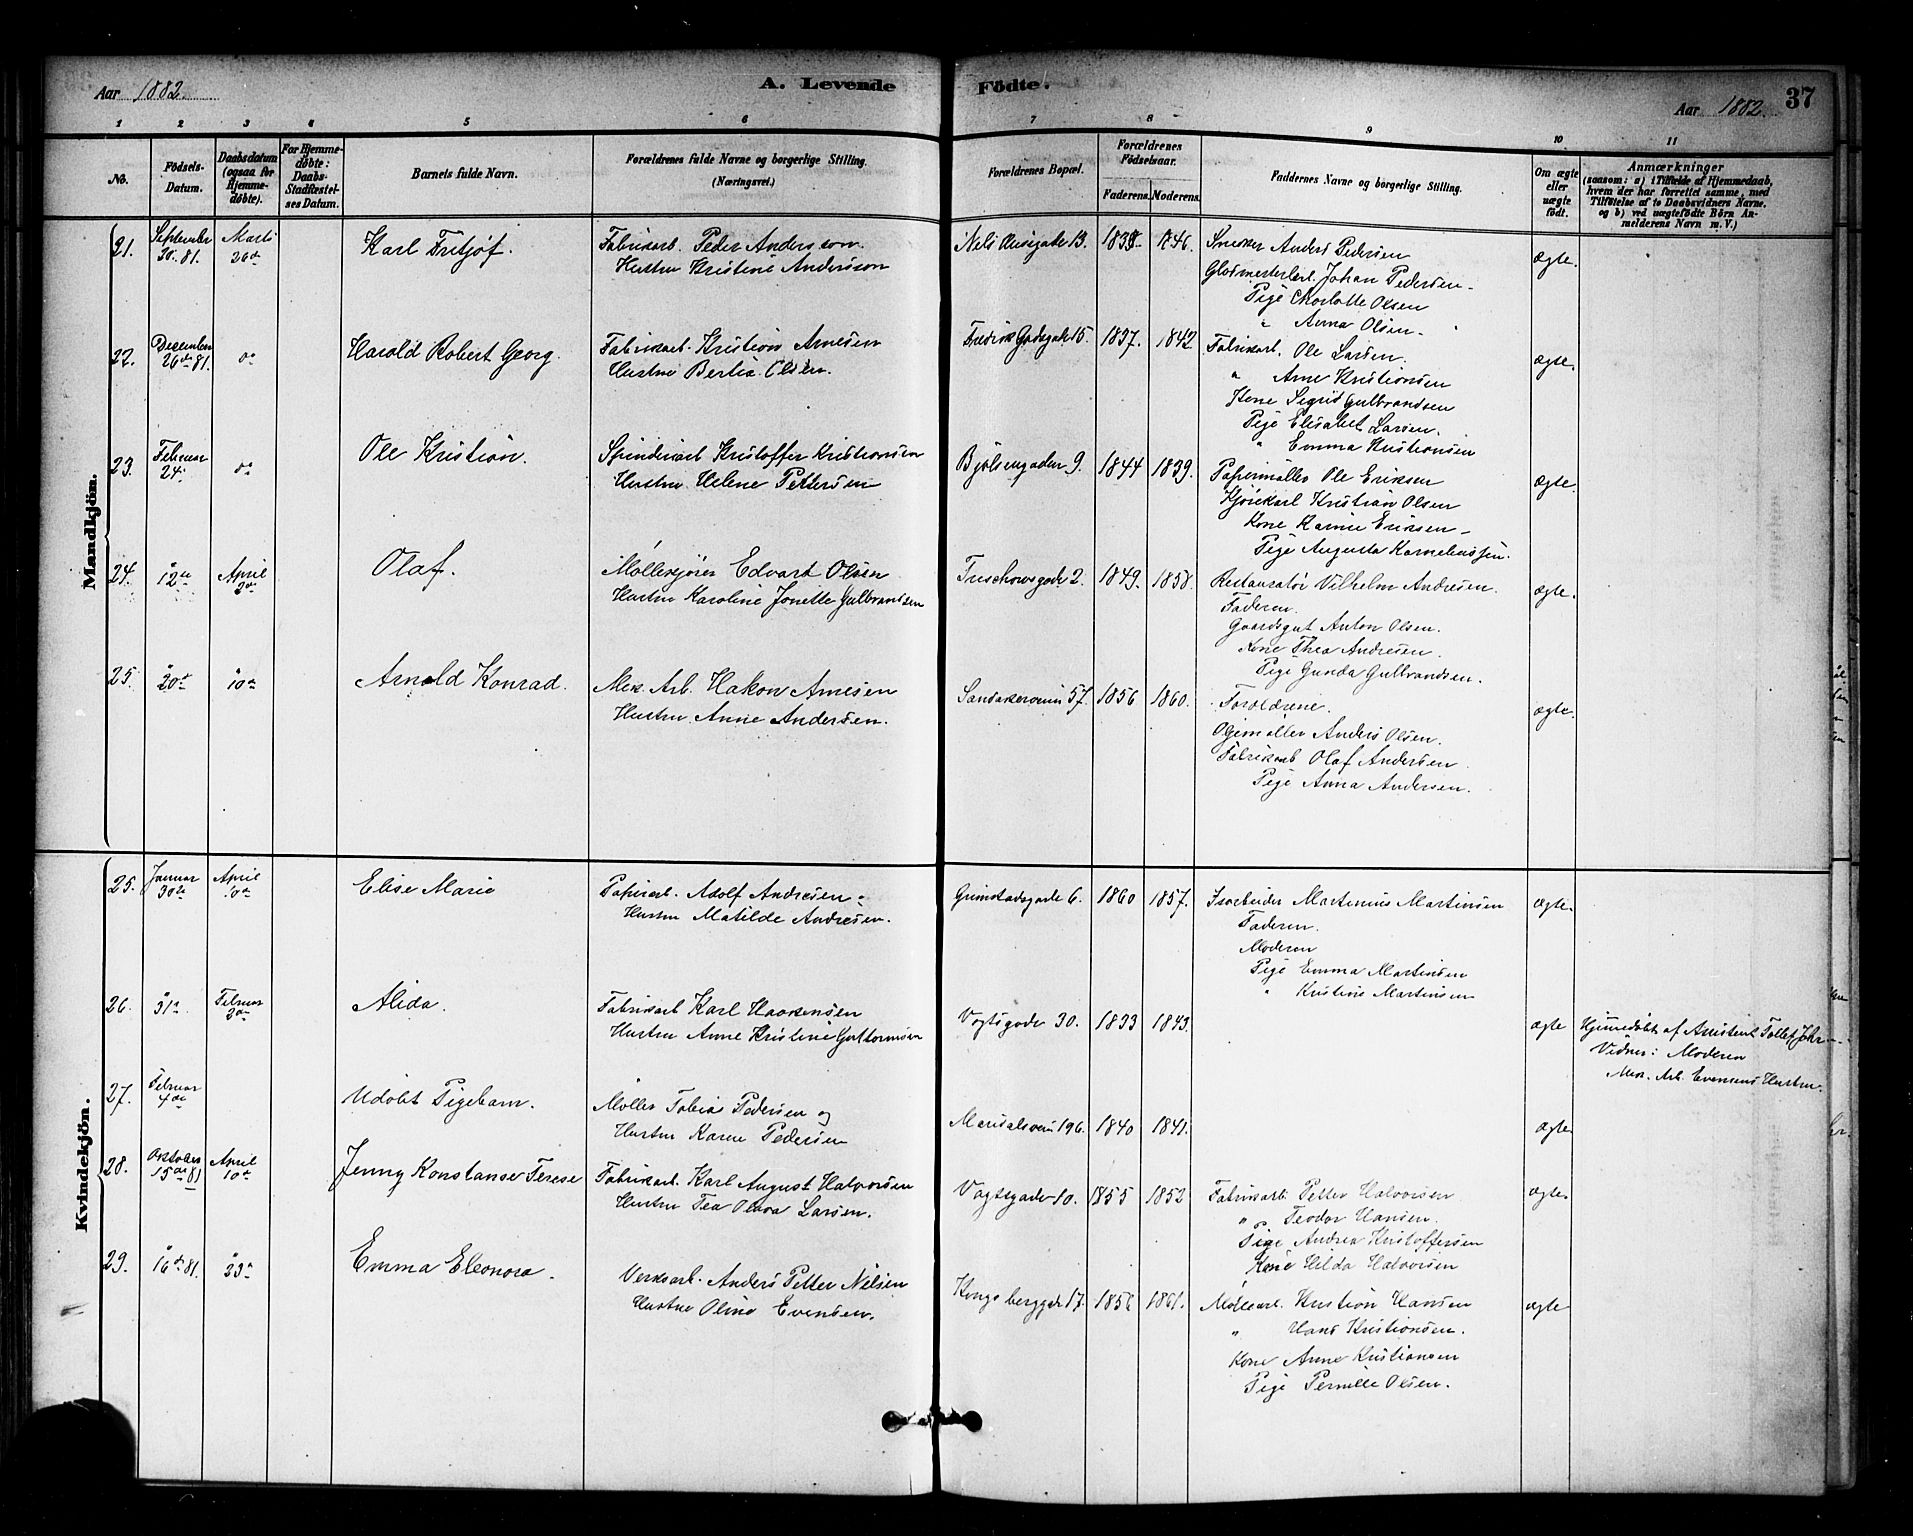 Aar 1882.
A. Levende Födte.
Aar 1882.
37
1 2 3 4 5 6 7 8 9 10 11
No.
Födsels-Datum.
Daabsdatum (ogsaa for Hjemme-døbte).
For Hjemme-døbte: Daabs-Stadfæstel-ses Datum.
Barnets fulde Navn.
Forældrenes fulde Navne og borgerlige Stilling.
(Næringsvei.)
Forældrenes Bopæl.
Forældrenes Födselsaar.
Faderens. Moderens.
Faddernes Navne og borgerlige Stilling.
Om ægte eller uægte født.
Anmærkninger
(saasom: a) i Tilfælde af Hjemmedaab,
hvem der har forrettet samme, med
Tilföielse af to Daabsvidners Navne,
og b) ved uægtefödte Börn An-
melderens Navn m. V.)
Mandkjön.
21. September 30. 81. Marts 26de Karl Fritjof. Fabrikarb. Peder Andersson
Hustru Kristine Andersson
1846. Snekker Anders Pedersen ægte.
Johan Pedersen
Pige Charlotte Olsen
" Anna Olsen.
22. December 26de 81. do Harold Robert Georg. Fabrikarb. Kristian Arnesen
Hustru Bertia Olsen.
15. 1837. 1842. Fabrikarb. Ole Larsen. ægte.
" Arne Kristiansen
Kone Sigrid Gulbrandsen
Pige Elisabet Larsen.
" Emma Kristiansen
23. Februar 24. do Ole Kristian. Spinderiarb Kristoffer Kristiansen
Hustru Helene Pettersen
Bjølsengaden 9. 1844 1839. Papirmøller Ole Eriksen ægte.
Kjørekarl Kristian Olsen
Kone Karine Eriksen
Pige Augusta Korneliussen.
24. 12te April 2den Olaf. Møllesjører Edvart Olsen
Hustru Karoline Jonette Gulbrandsen
Treschowsgade 2. 1849. 1858. Restauratør Vilhelm Andresen. ægte.
Faderen.
Gaardsgut Anton Olsen.
Kone Thea Andresen.
Pige Gunda Gulbrandsen.
25. 20de 10de Arnold Konrad. Mek. Arb. Hakon Arnesen
Hustru Anne Andersen.
Sandakerveien 57. 1856 1860. Forældrene. ægte.
Oljemøller Anders Olsen.
Fabrikarb Olaf Andersen
Pige Anna Andersen.
Kvindekjön.
25. Januar 30te April 10de Elise Marie Papirarb. Adolf Andresen.
Hustru Matilde Andresen.
Grimstadsgade 6. 1860 1857. Isarbeider Martinius Martinsen ægte.
Faderen.
Moderen
Pige Emma Martinsen
" Kristine Martinsen
26. 31te Februar Alida. Fabrikarb Karl Haakensen
Hustru Anne Kristine Guttormsen
Vogtsgade 30. 1833 1843. ægte Hjemmedøbt af Assistent
Vidner: Moderen
Mek. Arb. Evensens Hustru.
27. Februar 4de Udøbt Pigebarn. Møller Tobias Pedersen og
Hustru Karen Pedersen
Maridalsvein 196. 1840 1841. ægte
28. Oktober 15de 81 April 10de Jenny Konstanse Terese Fabrikarb. Karl August Halvorsen
Hustru Tea Olava Larsen.
Vogtsgade 10. 1855 1852 Fabrikarb. Petter Halvorsen ægte
" Teodor Hansen.
Pige Andrea Kristoffersen
Kone Hilda Halvorsen
29. 16de 81. 23de Emma Eleonora. Verksarb. Anders Petter Nilsen
Hustru Oline Evensen.
Kongsberggade 17. 1856 1861. Møllearb. Kristian Hansen ægte
" Hans Kristiansen.
Kone Anne Kristiansen
Pige Pernille Olsen.